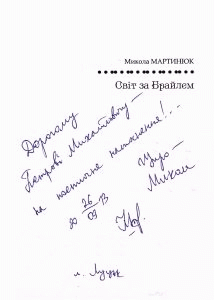 Микола МАРТИНЮК
Світ за Брайлем
Дорогому
Петрові Михайловичу –
на поетичне натхнення!..
Щиро –
Микол
26
09 13
м. Луцьк